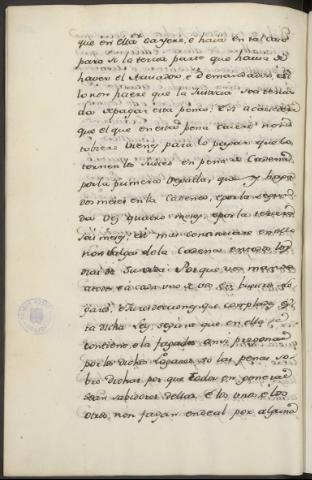 que en ella cayere, e haia en tal caso
para si la tercia parte que havia de
haver el Acusador, e demandador, e si
lo non huiere que la Justicia sea tenuda
de pagar esta pena. E si acaesciere
que el que en esta pena caiere non
tobiere vienes para lo pagar que lo
tornen los Juices en pena de Cadena
por la primera vegada, que y haga
dos meses en la Cadena, e por la segunda
vez quatro meses, e por la tercera
seis meses, e si mas continuare en ello
non salga de la Cadena en todos los
dias de su vida. Por que vos mando
a todos e a cada uno de vos en vuestros lugares
e Jurisdiciones que cumplades esta
dicha Ley, segun que en ella se
contiene, e la fagades ansi pregonar
por los dichos Lugares so las penas sobre
dichas por que todos en general
sean sabidores dellas. E los unos, e los
otros, non fagan endeal por alguna